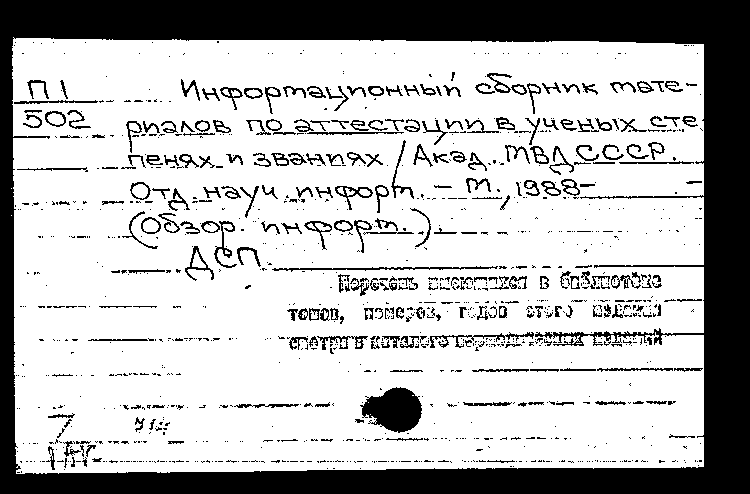 П1 Информационный сборник мате-
502 риалов по аттестации в ученых сте
пенях и званиях / Акад. МВД СССР.
Отд. науч. информ. – М., 1988–   –
(Обзор. информ.).
ДСП.
Перечень имеющихся в библиотеке
томов, номеров, годов этого издания
смотри в каталоге периодических изданий
7